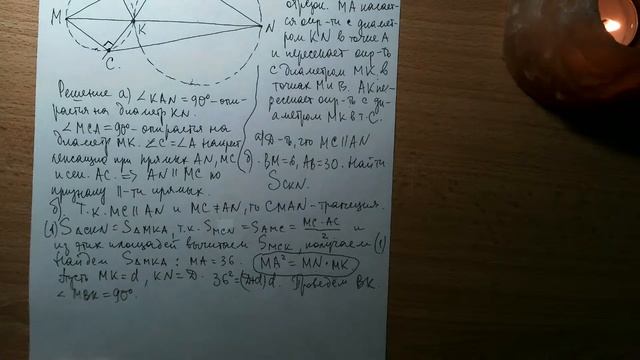 M
K
N
C.
отрезок. MA касает-
ся окр-ти с диамет-
ром KN в точке A
и пересекает окр-ть
с диаметром MK в
точках M и B. AK пе-
ресекает окр-ть с ди-
аметром MK в т. C.
а) Д-ть, что MC || AN
б) BM=6, AB=30. Найти
S CKN.
Решение а) ∠KAN = 90° - опи-
рается на диаметр KN.
∠MCA = 90° - опирается на
диаметр MK. ∠C = ∠A накрест
лежащие при прямых AN, MC
и сек. AC. => AN || MC по
признаку ||-ти прямых.
б) Т.К. MC || AN и MC ≠ AN, то CMAN - трапеция.
(1) S△CKN = S△MKA, т.к. S MCN = S AMC = MC·AC/2 и
из этих площадей вычитаем S MCK, получаем (1)
Найдем S△MKA: MA = 36. MA² = MN·MK
Пусть MK = d, KN = D. 36² = (D+d)d. Проведем BK.
∠MBK = 90°.